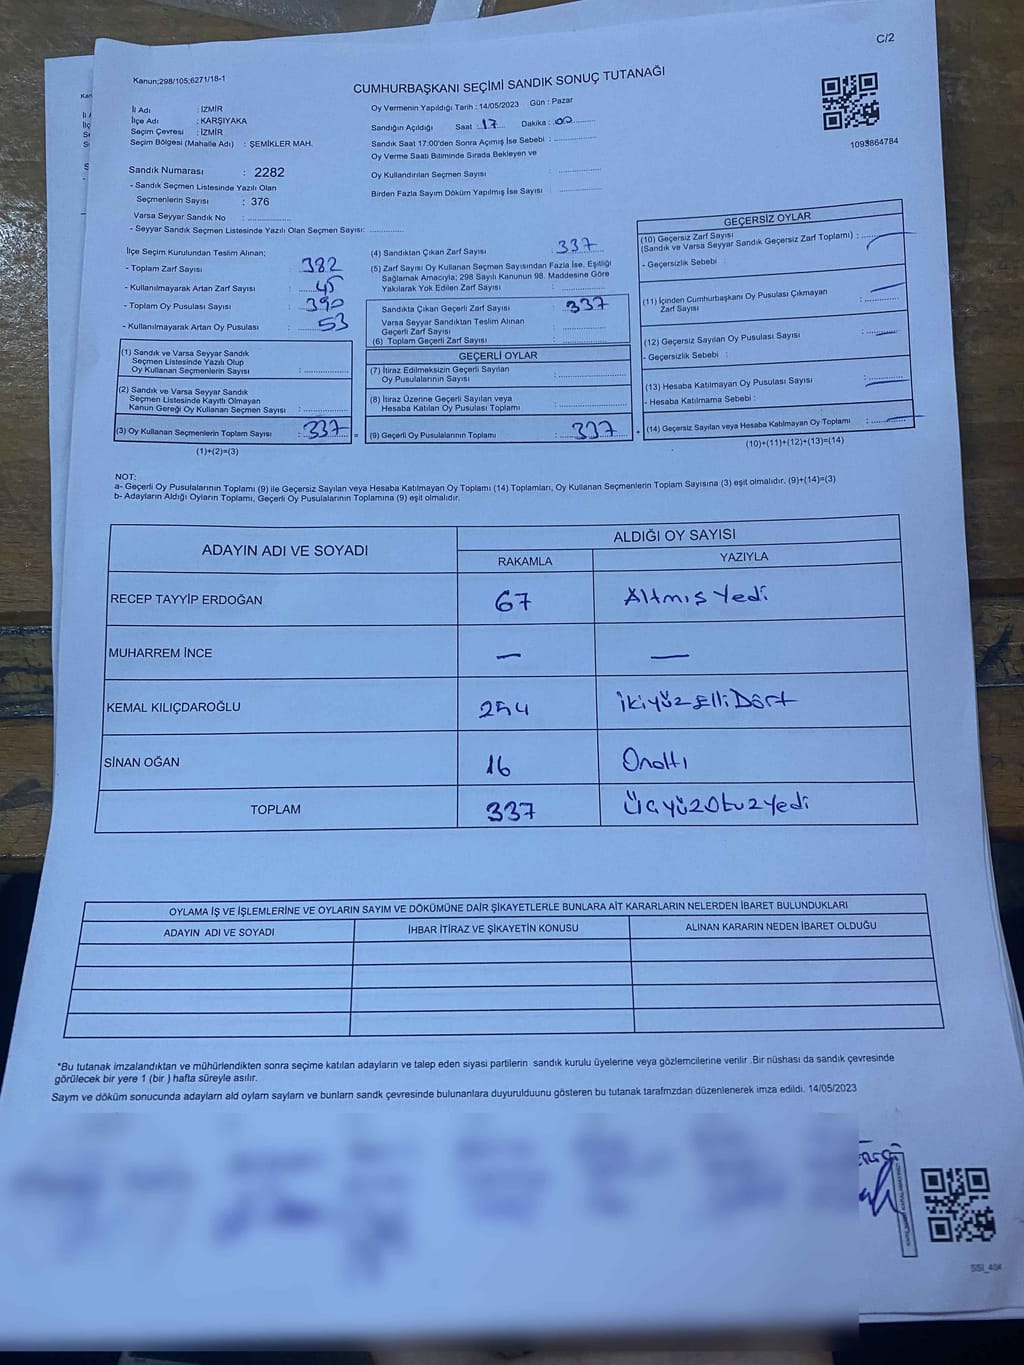 C/2
Kanun;298/105;6271/18-1
CUMHURBAŞKANI SEÇİMİ SANDIK SONUÇ TUTANAĞI
1093864784
İli Adı : İZMİR
İlçe Adı : KARŞIYAKA
Seçim Çevresi : İZMİR
Seçim Bölgesi (Mahalle Adı) : ŞEMİKLER MAH.
Sandık Numarası : 2282
- Sandık Seçmen Listesinde Yazılı Olan
Seçmenlerin Sayısı : 376
Varsa Seyyar Sandık No :
- Seyyar Sandık Seçmen Listesinde Yazılı Olan Seçmen Sayısı:
Oy Vermenin Yapıldığı Tarih : 14/05/2023 Gün : Pazar
Sandığın Açıldığı Saat : 17 Dakika : 00
Sandık Saat 17:00'den Sonra Açımış İse Sebebi :
Oy Verme Saati Bitiminde Sırada Bekleyen ve
Oy Kullandırılan Seçmen Sayısı :
Birden Fazla Sayım Döküm Yapılmış İse Sayısı :
İlçe Seçim Kurulundan Teslim Alınan;
- Toplam Zarf Sayısı : 382
- Kullanılmayarak Artan Zarf Sayısı : 45
- Toplam Oy Pusulası Sayısı : 390
- Kullanılmayarak Artan Oy Pusulası : 53
(1) Sandık ve Varsa Seyyar Sandık
Seçmen Listesinde Yazılı Olup
Oy Kullanan Seçmenlerin Sayısı :
(2) Sandık ve Varsa Seyyar Sandık
Seçmen Listesinde Kayıtlı Olmayan
Kanun Gereği Oy Kullanan Seçmen Sayısı :
(3) Oy Kullanan Seçmenlerin Toplam Sayısı : 337 =
(1)+(2)=(3)
(4) Sandıktan Çıkan Zarf Sayısı : 337
(5) Zarf Sayısı Oy Kullanan Seçmen Sayısından Fazla İse, Eşitliği
Sağlamak Amacıyla; 298 Sayılı Kanunun 98. Maddesine Göre
Yakılarak Yok Edilen Zarf Sayısı :
Sandıkta Çıkan Geçerli Zarf Sayısı : 337
Varsa Seyyar Sandıktan Teslim Alınan
Geçerli Zarf Sayısı :
(6) Toplam Geçerli Zarf Sayısı :
GEÇERLİ OYLAR
(7) İtiraz Edilmeksizin Geçerli Sayılan
Oy Pusulalarının Sayısı :
(8) İtiraz Üzerine Geçerli Sayılan veya
Hesaba Katılan Oy Pusulası Toplamı :
(9) Geçerli Oy Pusulalarının Toplamı : 337 +
GEÇERSİZ OYLAR
(10) Geçersiz Zarf Sayısı
(Sandık ve Varsa Seyyar Sandık Geçersiz Zarf Toplamı) :
- Geçersizlik Sebebi :
(11) İçinden Cumhurbaşkanı Oy Pusulası Çıkmayan
Zarf Sayısı : —
(12) Geçersiz Sayılan Oy Pusulası Sayısı : —
- Geçersizlik Sebebi :
(13) Hesaba Katılmayan Oy Pusulası Sayısı : —
- Hesaba Katılmama Sebebi :
(14) Geçersiz Sayılan veya Hesaba Katılmayan Oy Toplamı : —
(10)+(11)+(12)+(13)=(14)
NOT:
a- Geçerli Oy Pusulalarının Toplamı (9) ile Geçersiz Sayılan veya Hesaba Katılmayan Oy Toplamı (14) Toplamları, Oy Kullanan Seçmenlerin Toplam Sayısına (3) eşit olmalıdır. (9)+(14)=(3)
b- Adayların Aldığı Oyların Toplamı, Geçerli Oy Pusulalarının Toplamına (9) eşit olmalıdır.
ADAYIN ADI VE SOYADI ALDIĞI OY SAYISI
RAKAMLA YAZIYLA
RECEP TAYYİP ERDOĞAN 67 Altmış Yedi
MUHARREM İNCE — —
KEMAL KILIÇDAROĞLU 254 İkiyüz Elli Dört
SİNAN OĞAN 16 Onaltı
TOPLAM 337 ÜçyüzOtuzYedi
OYLAMA İŞ VE İŞLEMLERİNE VE OYLARIN SAYIM VE DÖKÜMÜNE DAİR ŞİKAYETLERLE BUNLARA AİT KARARLARIN NELERDEN İBARET BULUNDUKLARI
ADAYIN ADI VE SOYADI İHBAR İTİRAZ VE ŞİKAYETİN KONUSU ALINAN KARARIN NEDEN İBARET OLDUĞU
*Bu tutanak imzalandıktan ve mühürlendikten sonra seçime katılan adayların ve talep eden siyasi partilerin sandık kurulu üyelerine veya gözlemcilerine verilir .Bir nüshası da sandık çevresinde
görülecek bir yere 1 (bir ) hafta süreyle asılır.
Saym ve döküm sonucunda adaylarn ald oylarn saylarn ve bunlarn sandk çevresinde bulunanlara duyurulduunu gösteren bu tutanak tarafmzdan düzenlenerek imza edildi. 14/05/2023